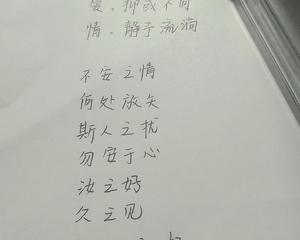 爱，抑或不同
情，静于流淌
不安之情
何处放矢
斯人之扰
勿安于心
汝之好
久之见